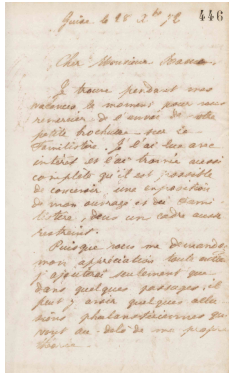 446
Guise le 25 Xbre 72
Cher Monsieur Masson
Je trouve pendant mes
vacances le moment pour vous
remercier de l'envoi de votre
petite brochure sur le
Familistère. Je l'ai lue avec
intérêt et l'ai trouvée aussi
complète qu'il est possible
de concevoir une exposition
de mon ouvrage et du Fami-
listère, dans un cadre aussi
restreint.
Puisque vous me demandez
mon appréciation toute entière
j'ajouterai seulement que
dans quelques passages, il
peut y avoir quelques allu-
sions phalanstériennes qui
vont au-delà de ma propre